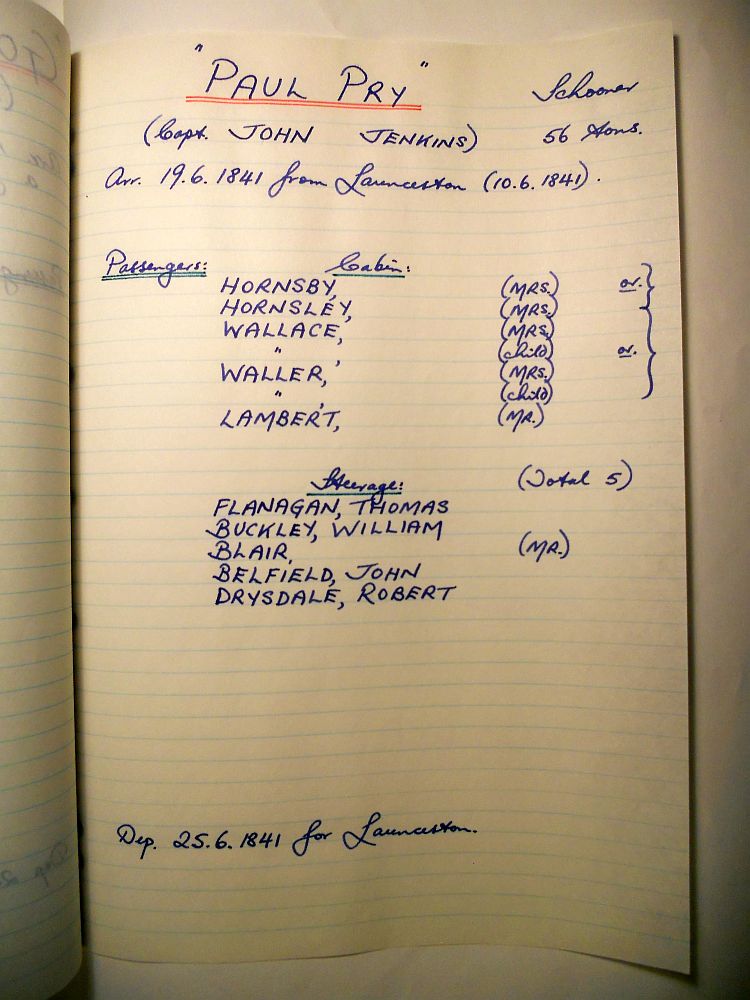 "PAUL PRY" Schooner
(Capt. JOHN JENKINS) 56 tons.
Arr. 19.6.1841 from Launceston (10.6.1841).
Passengers: Cabin:
HORNSBY, (MRS.) or.
HORNSLEY, (MRS.)
WALLACE, (MRS.)
" , (child) or.
WALLER, (MRS.)
" , (child)
LAMBERT, (MR.)
Steerage: (Total 5)
FLANAGAN, THOMAS
BUCKLEY, WILLIAM
BLAIR, (MR.)
BELFIELD, JOHN
DRYSDALE, ROBERT
Dep. 25.6.1841 for Launceston.